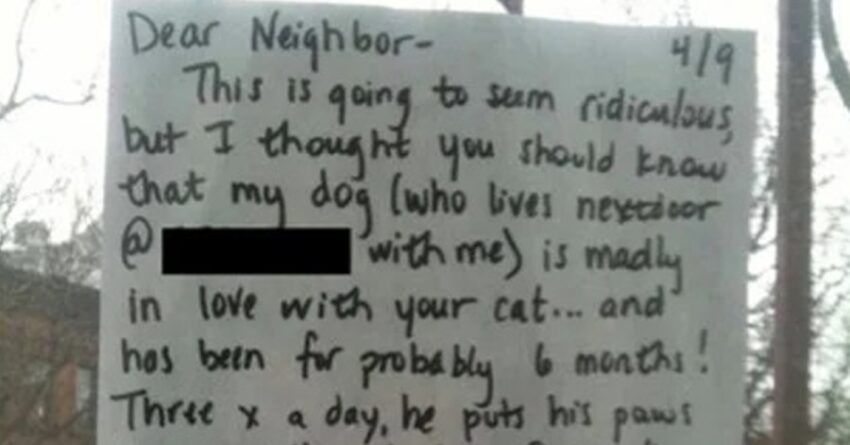 Dear Neighbor-
4/9
This is going to seem ridiculous,
but I thought you should know
that my dog (who lives nextdoor
@ with me) is madly
in love with your cat... and
has been for probably 6 months!
Three x a day, he puts his paws